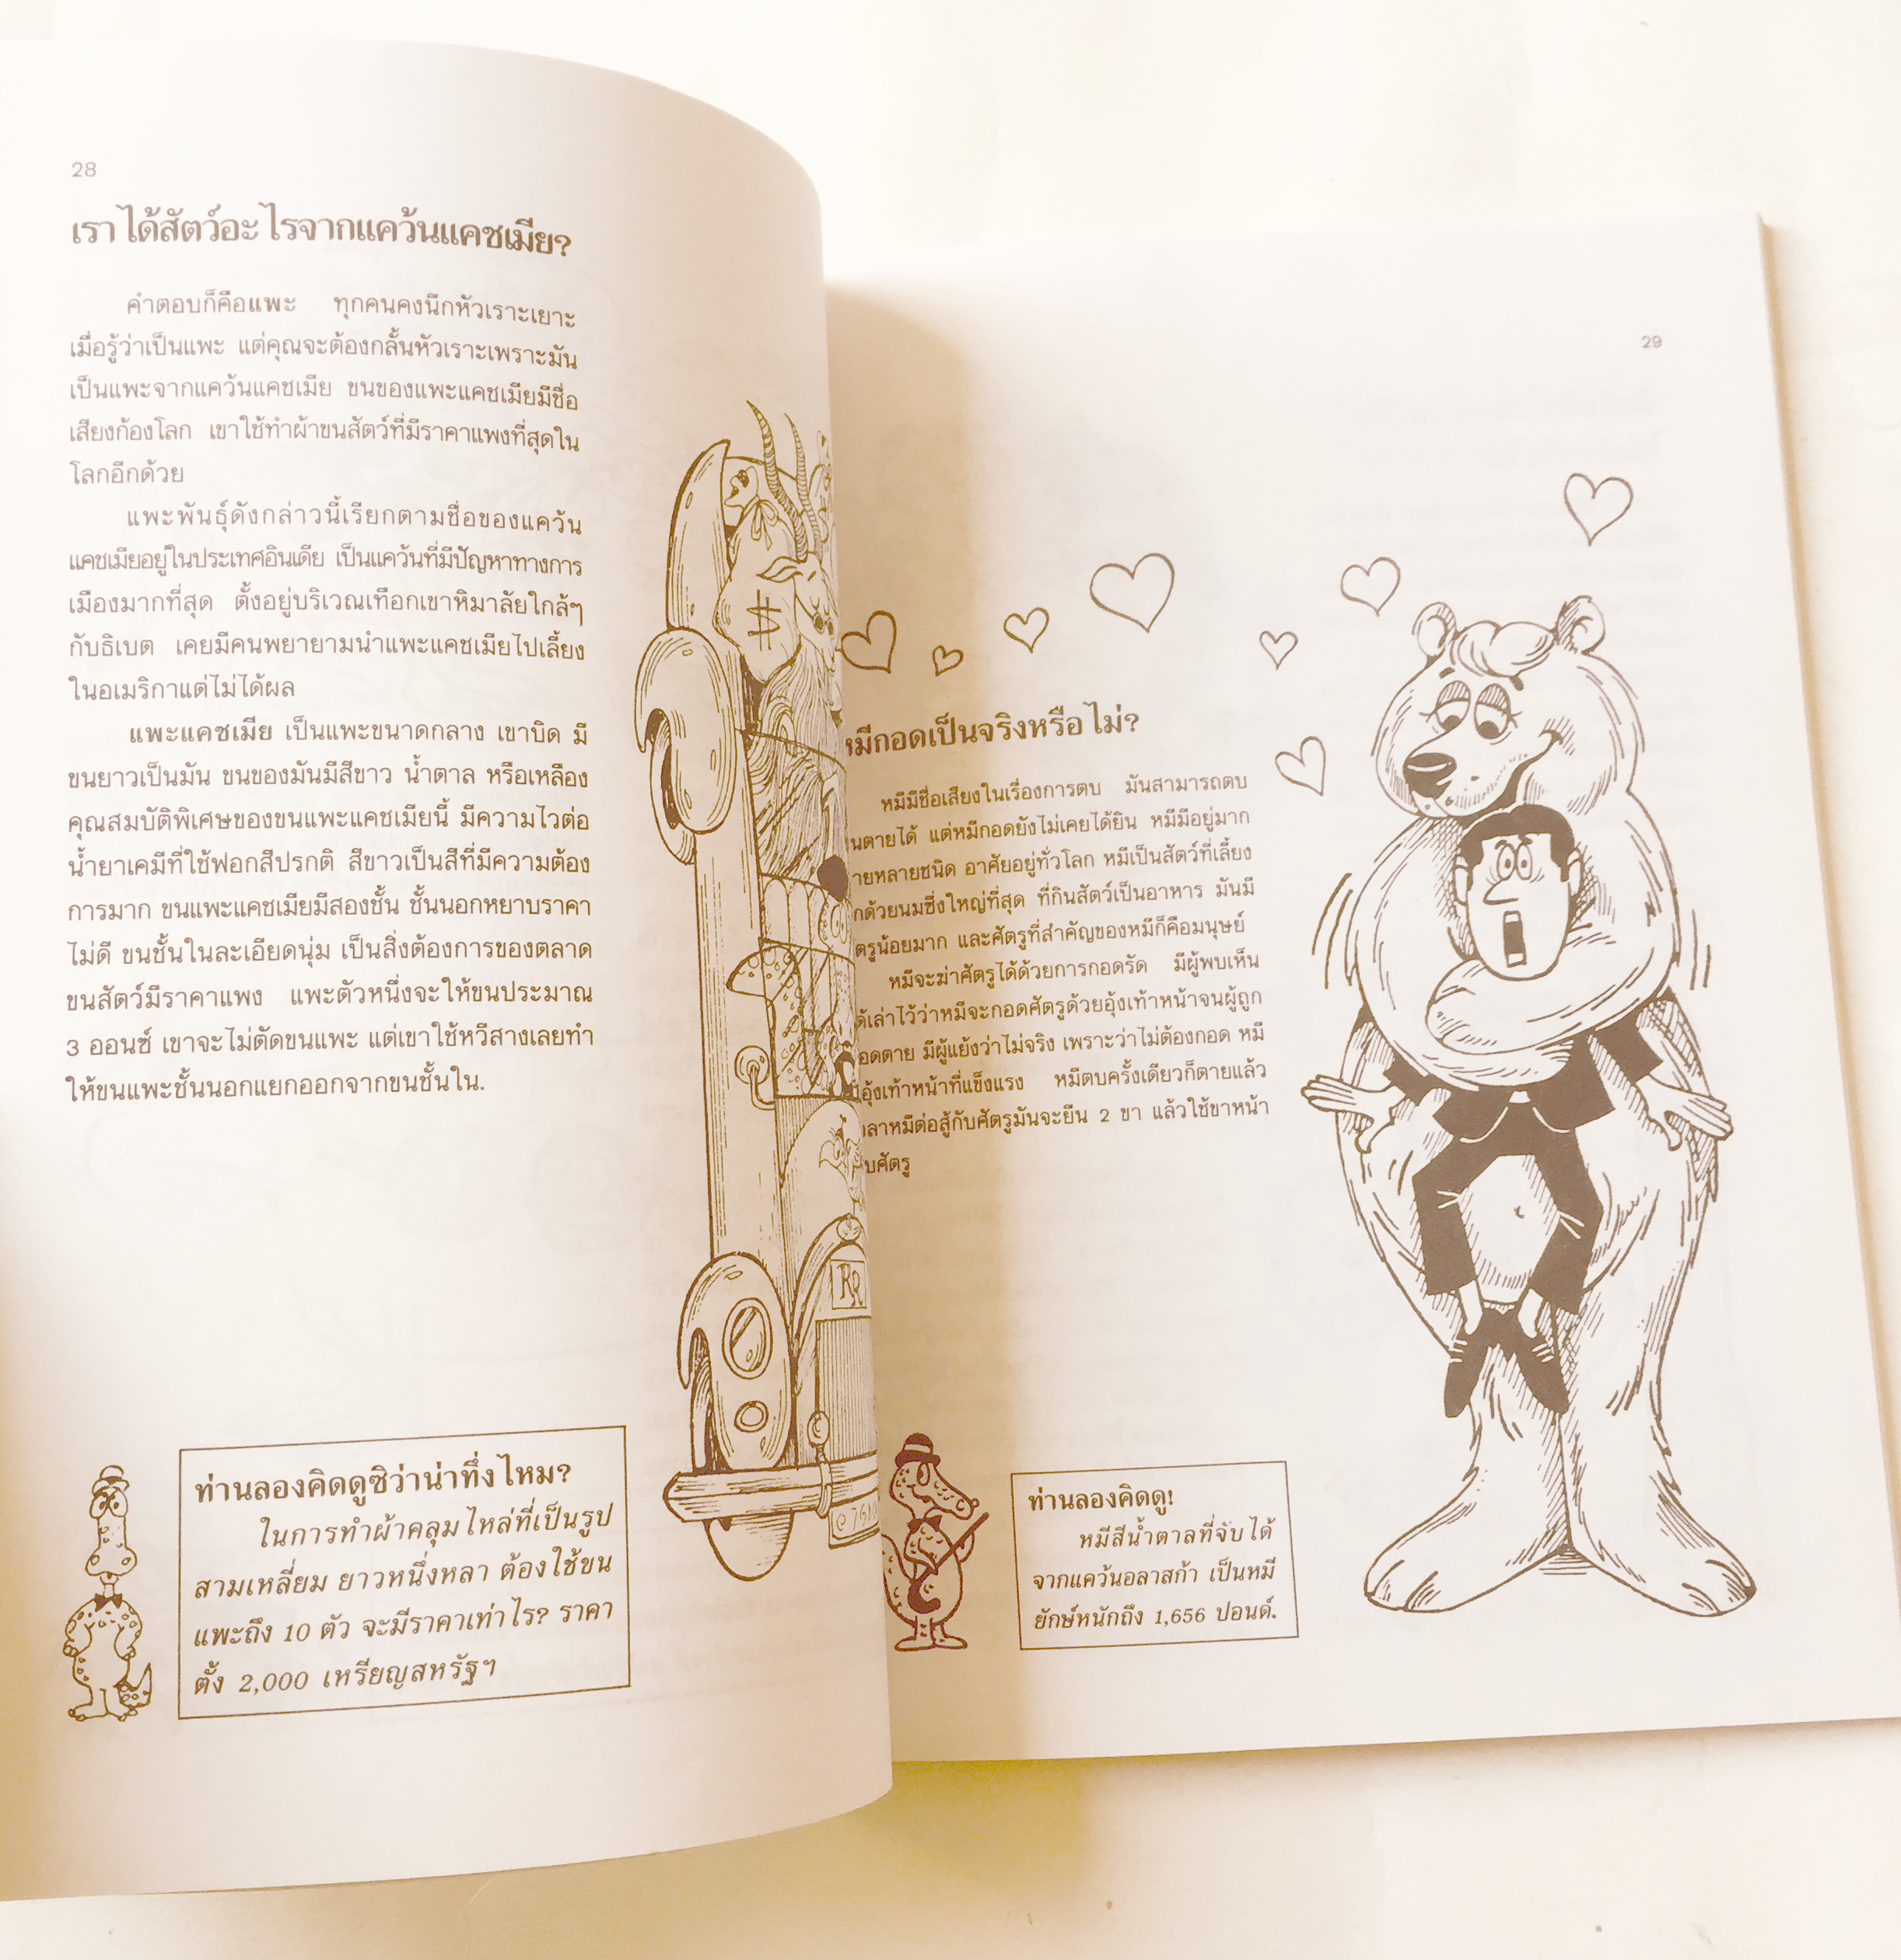 28
เราได้สัตว์อะไรจากแคว้นแคชเมีย?
คำตอบก็คือแพะ ทุกคนคงนึกหัวเราะเยาะ
เมื่อรู้ว่าเป็นแพะ แต่คุณจะต้องกลั้นหัวเราะเพราะมัน
เป็นแพะจากแคว้นแคชเมีย ขนของแพะแคชเมียมีชื่อ
เสียงก้องโลก เขาใช้ทำผ้าขนสัตว์ที่มีราคาแพงที่สุดใน
โลกอีกด้วย
แพะพันธุ์ดังกล่าวนี้เรียกตามชื่อของแคว้น
แคชเมียอยู่ในประเทศอินเดีย เป็นแคว้นที่มีปัญหาทางการ
เมืองมากที่สุด ตั้งอยู่บริเวณเทือกเขาหิมาลัยใกล้ๆ
กับธิเบต เคยมีคนพยายามนำแพะแคชเมียไปเลี้ยง
ในอเมริกาแต่ไม่ได้ผล
แพะแคชเมีย เป็นแพะขนาดกลาง เขาบิด มี
ขนยาวเป็นมัน ขนของมันมีสีขาว น้ำตาล หรือเหลือง
คุณสมบัติพิเศษของขนแพะแคชเมียนี้ มีความไวต่อ
น้ำยาเคมีที่ใช้ฟอกสีปรกติ สีขาวเป็นสีที่มีความต้อง
การมาก ขนแพะแคชเมียมีสองชั้น ชั้นนอกหยาบราคา
ไม่ดี ขนชั้นในละเอียดนุ่ม เป็นสิ่งต้องการของตลาด
ขนสัตว์มีราคาแพง แพะตัวหนึ่งจะให้ขนประมาณ
3 ออนซ์ เขาจะไม่ตัดขนแพะ แต่เขาใช้หวีสางเลยทำ
ให้ขนแพะชั้นนอกแยกออกจากขนชั้นใน.
ท่านลองคิดดูซิว่าน่าทึ่งไหม?
ในการทำผ้าคลุมไหล่ที่เป็นรูป
สามเหลี่ยม ยาวหนึ่งหลา ต้องใช้ขน
แพะถึง 10 ตัว จะมีราคาเท่าไร? ราคา
ตั้ง 2,000 เหรียญสหรัฐฯ
$
RR
29
หมีกอดเป็นจริงหรือไม่?
หมีมีชื่อเสียงในเรื่องการตบ มันสามารถตบ
นตายได้ แต่หมีกอดยังไม่เคยได้ยิน หมีมีอยู่มาก
ายหลายชนิด อาศัยอยู่ทั่วโลก หมีเป็นสัตว์ที่เลี้ยง
กด้วยนมซึ่งใหญ่ที่สุด ที่กินสัตว์เป็นอาหาร มันมี
ตรูน้อยมาก และศัตรูที่สำคัญของหมีก็คือมนุษย์
หมีจะฆ่าศัตรูได้ด้วยการกอดรัด มีผู้พบเห็น
ด้เล่าไว้ว่าหมีจะกอดศัตรูด้วยอุ้งเท้าหน้าจนผู้ถูก
อดตาย มีผู้แย้งว่าไม่จริง เพราะว่าไม่ต้องกอด หมี
อุ้งเท้าหน้าที่แข็งแรง หมีตบครั้งเดียวก็ตายแล้ว
ลาหมีต่อสู้กับศัตรูมันจะยืน 2 ขา แล้วใช้ขาหน้า
บศัตรู
ท่านลองคิดดู!
หมีสีน้ำตาลที่จับได้
จากแคว้นอลาสก้า เป็นหมี
ยักษ์หนักถึง 1,656 ปอนด์.